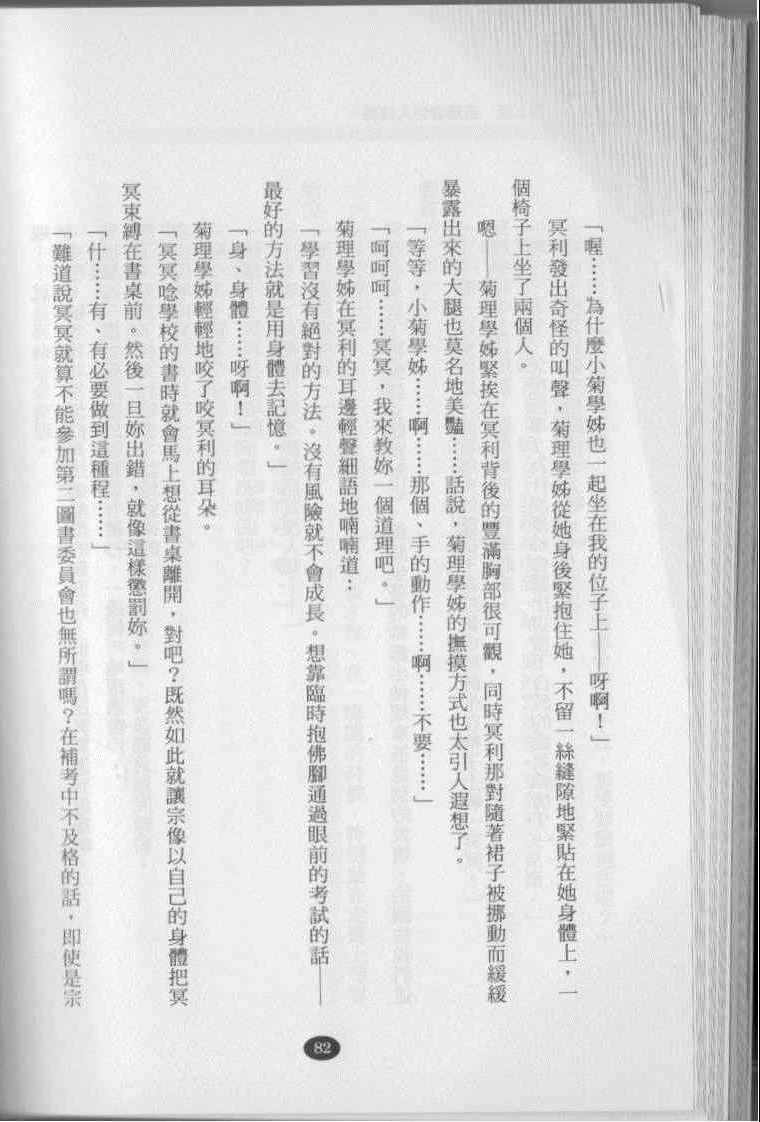 「喔……為什麼小菊學姊也一起坐在我的位子上——呀啊！」
冥利發出奇怪的叫聲，菊理學姊從她身後緊抱住她，不留一絲縫隙地緊貼在她身體上，一
個椅子上坐了兩個人。
嗯——菊理學姊緊挨在冥利背後的豐滿胸部很可觀，同時冥利那對隨著裙子被挪動而緩緩
暴露出來的大腿也莫名地美豔……話說，菊理學姊的撫摸方式也太引人遐想了。
「等等，小菊學姊……啊……那個、手的動作……啊……不要……」
「呵呵呵……冥冥，我來教妳一個道理吧。」
菊理學姊在冥利的耳邊輕聲細語地喃喃道：
「學習沒有絕對的方法。沒有風險就不會成長。想靠臨時抱佛腳通過眼前的考試的話——
最好的方法就是用身體去記憶。」
「身、身體……呀啊！」
菊理學姊輕輕地咬了咬冥利的耳朵。
「冥冥唸學校的書時就會馬上想從書桌離開，對吧？既然如此就讓宗像以自己的身體把冥
冥束縛在書桌前。然後一旦妳出錯，就像這樣懲罰妳。」
「什……有、有必要做到這種程……」
「難道說冥冥就算不能參加第二圖書委員會也無所謂嗎？在補考中不及格的話，即使是宗
82